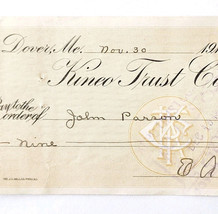 Dover, Me. Nov. 30 19
Kineo Trust Co
Pay to the
order of John Parson
Nine